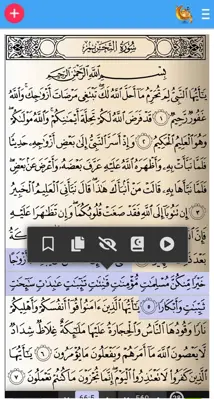 سُورَةُ التَّحْرِيمِ
بِسْمِ ٱللَّهِ ٱلرَّحْمَٰنِ ٱلرَّحِيمِ
يَٰٓأَيُّهَا ٱلنَّبِىُّ لِمَ تُحَرِّمُ مَآ أَحَلَّ ٱللَّهُ لَكَ تَبْتَغِى مَرْضَاتَ أَزْوَٰجِكَ وَٱللَّهُ
غَفُورٌ رَّحِيمٌ ١ قَدْ فَرَضَ ٱللَّهُ لَكُمْ تَحِلَّةَ أَيْمَٰنِكُمْ وَٱللَّهُ مَوْلَىٰكُمْ
وَهُوَ ٱلْعَلِيمُ ٱلْحَكِيمُ ٢ وَإِذْ أَسَرَّ ٱلنَّبِىُّ إِلَىٰ بَعْضِ أَزْوَٰجِهِۦ حَدِيثًا
فَلَمَّا نَبَّأَتْ بِهِۦ وَأَظْهَرَهُ ٱللَّهُ عَلَيْهِ عَرَّفَ بَعْضَهُۥ وَأَعْرَضَ عَنۢ بَعْضٍ
فَلَمَّا نَبَّأَهَا بِهِۦ قَالَتْ مَنْ أَنۢبَأَكَ هَٰذَا قَالَ نَبَّأَنِىَ ٱلْعَلِيمُ ٱلْخَبِيرُ
٣ إِن تَتُوبَآ إِلَى ٱللَّهِ فَقَدْ صَغَتْ قُلُوبُكُمَا وَإِن تَظَٰهَرَا عَلَيْهِ
خَيْرًا مِّنكُنَّ مُسْلِمَٰتٍ مُّؤْمِنَٰتٍ قَٰنِتَٰتٍ تَٰٓئِبَٰتٍ عَٰبِدَٰتٍ سَٰٓئِحَٰتٍ
ثَيِّبَٰتٍ وَأَبْكَارًا ٥ يَٰٓأَيُّهَا ٱلَّذِينَ ءَامَنُوا۟ قُوٓا۟ أَنفُسَكُمْ وَأَهْلِيكُمْ
نَارًا وَقُودُهَا ٱلنَّاسُ وَٱلْحِجَارَةُ عَلَيْهَا مَلَٰٓئِكَةٌ غِلَاظٌ شِدَادٌ
لَّا يَعْصُونَ ٱللَّهَ مَآ أَمَرَهُمْ وَيَفْعَلُونَ مَا يُؤْمَرُونَ ٦ يَٰٓأَيُّهَا
ٱلَّذِينَ كَفَرُوا۟ لَا تَعْتَذِرُوا۟ ٱلْيَوْمَ إِنَّمَا تُجْزَوْنَ مَا كُنتُمْ تَعْمَلُونَ ٧
66:5 560